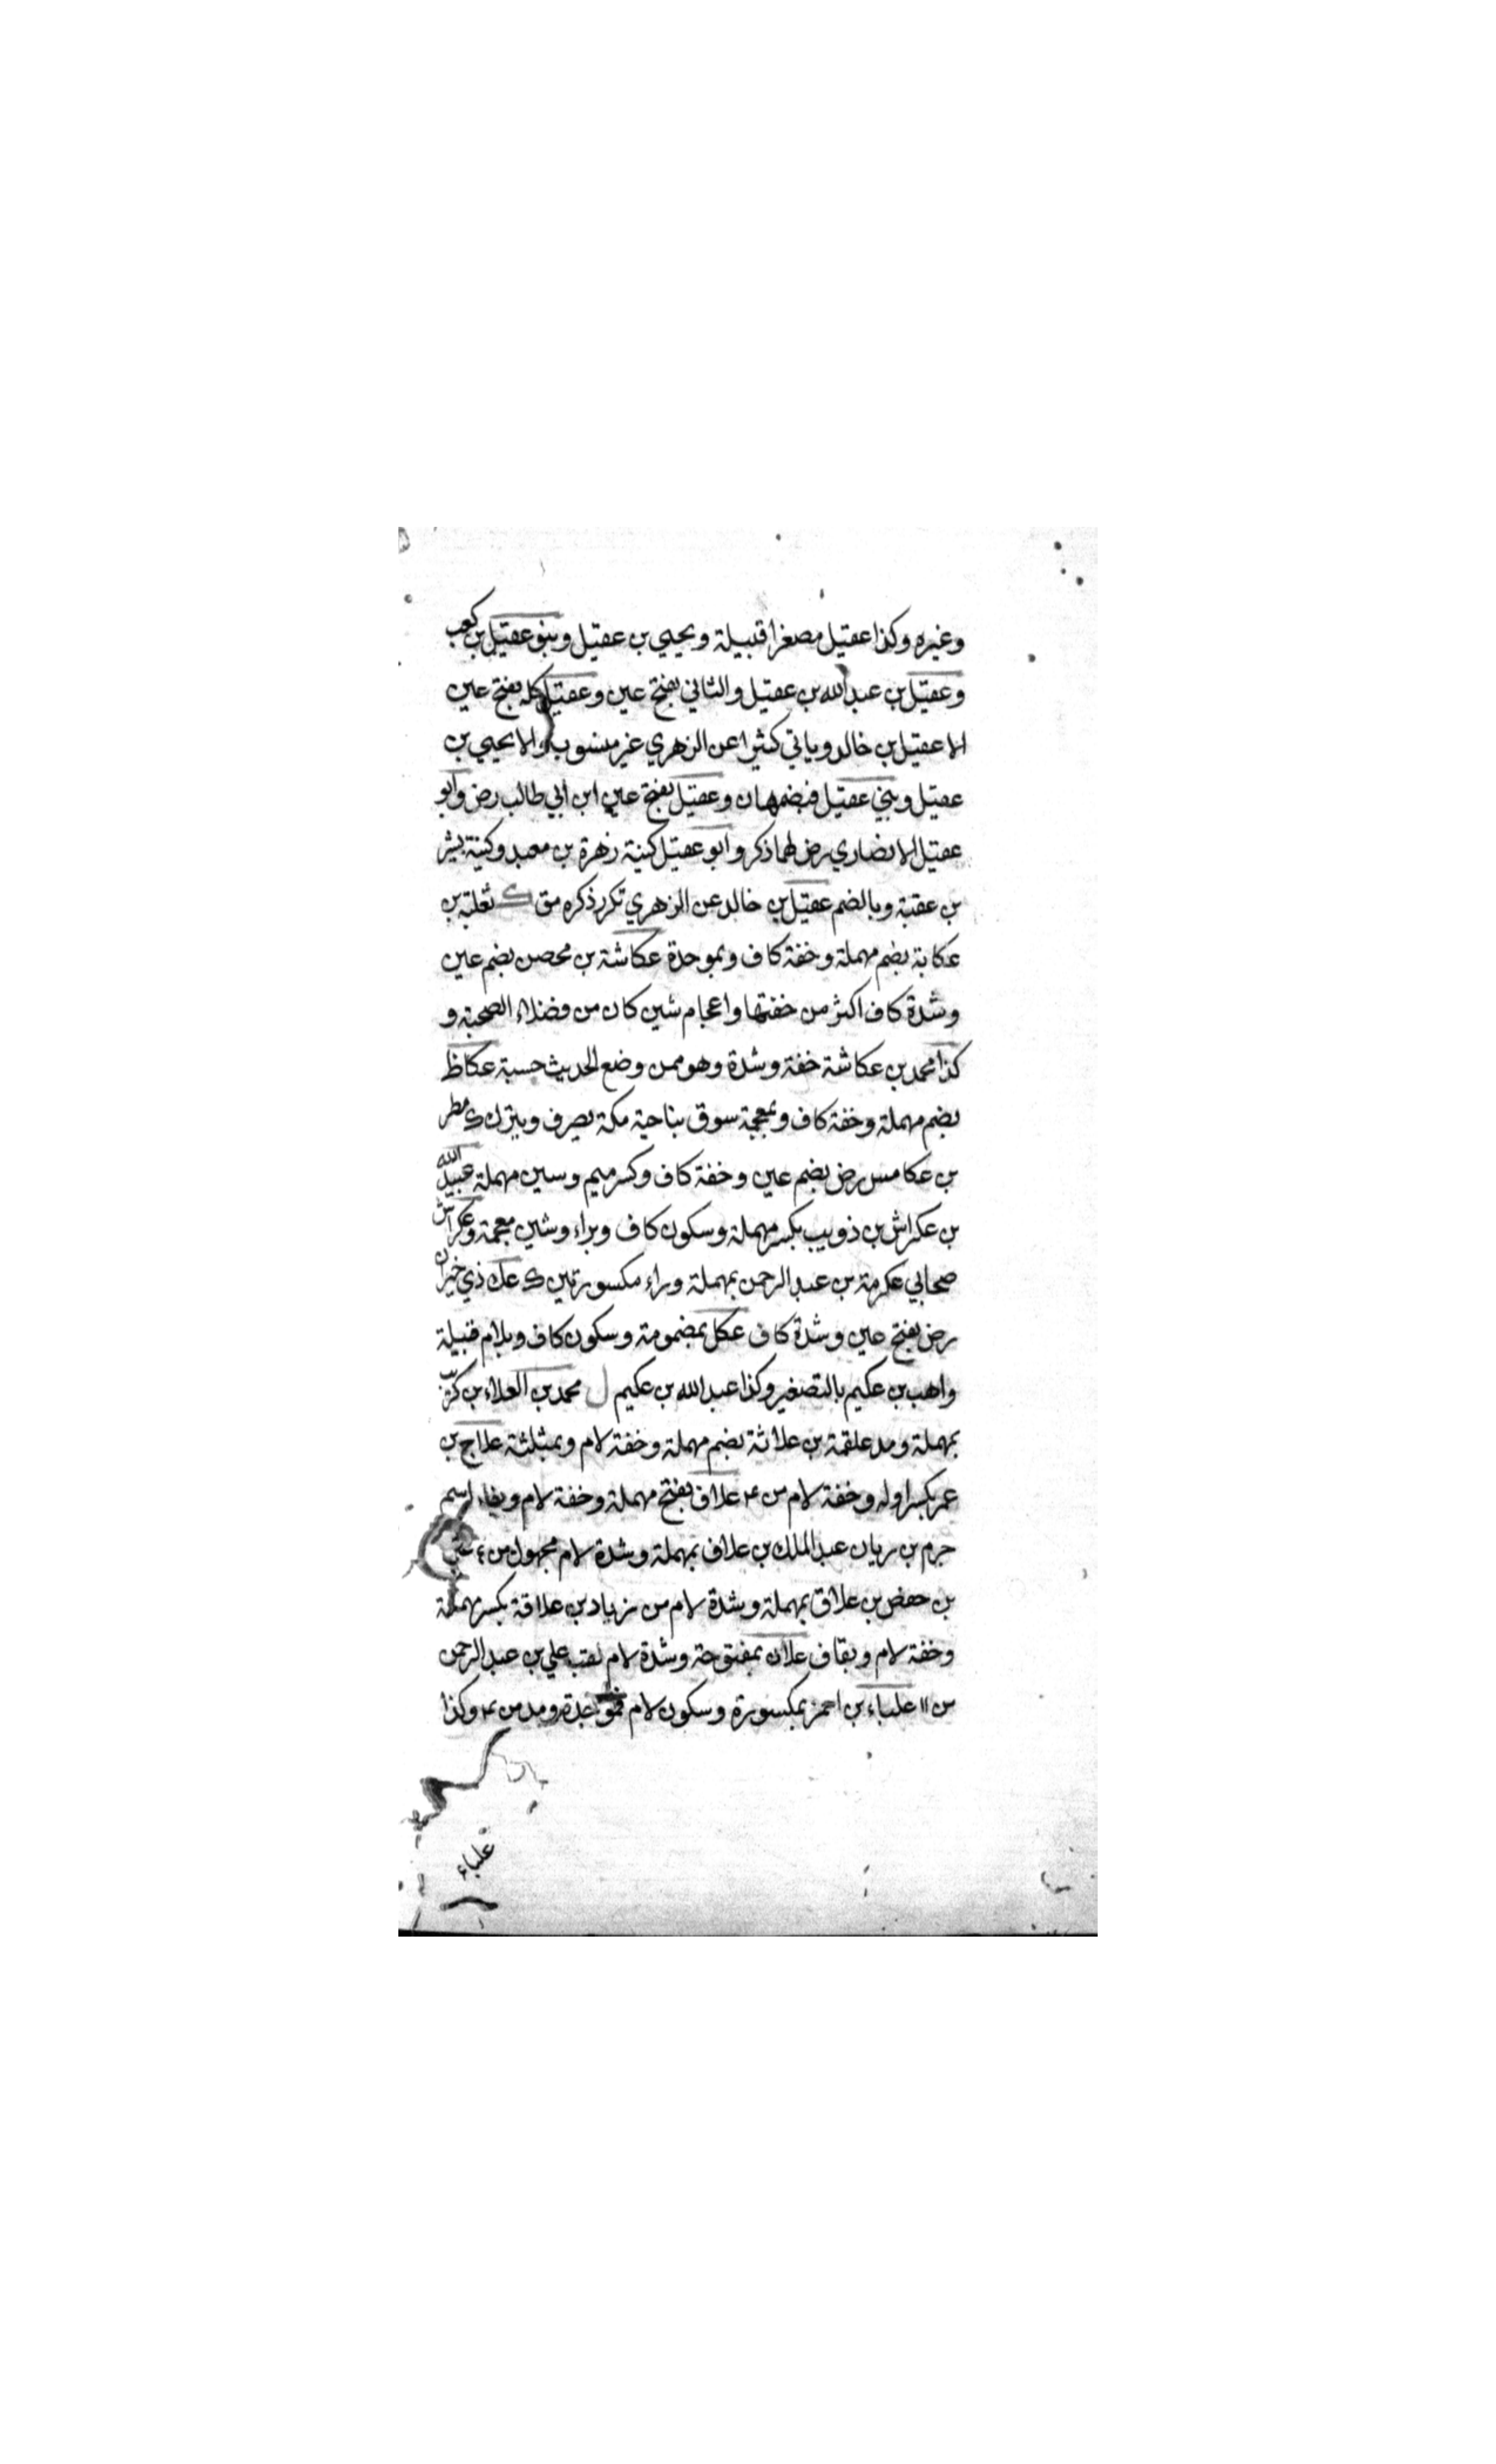 وغيره وكذا عقيل مصغرا قبيلة ويحيي بن عقيل وبنو عقيل بن كعب
وعقيل بن عبد الله بن عقيل والثاني بفتح عين وعقيل كله بفتح عين
الا عقيل بن خالد وياتي كثيرا عن الزهري غير منسوب والا يحيي بن
عقيل وبني عقيل فبضمهان وعقيل بفتح عين ابن ابي طالب رض وابو
عقيل الانصاري رض لهما ذكر وابو عقيل كنية زهرة بن معبد وكنية بشر
بن عقبة وبالضم عقيل بن خالد عن الزهري تكرر ذكره مق ك ثعلبة بن
عكابة بضم مهملة وخفة كاف وبموحدة عكاشة بن محصن بضم عين
وشدة كاف اكثر من خفتها واعجام شين كان من فضلاء الصحبة و
كذا محمد بن عكاشة خفة وشدة وهو ممن وضع الحديث حسبة عكاظ
بضم مهملة وخفة كاف وبمعجمة سوق بناحية مكة يصرف ويترك ك مطر
بن عكامس رض بضم عين وخفة كاف وكسر ميم وسين مهملة عبيد الله
بن عكراش بن ذويب بكسر مهملة وسكون كاف وبراء وشين معجمة وعكراش
صحابي عكرمة بن عبد الرحمن بمهملة وراء مكسورتين ك عك ذي خيران
رض بفتح عين وشدة كاف عكل بمضمومة وسكون كاف وبلام قبيلة
واهب بن عكيم بالتصغير وكذا عبد الله بن عكيم ل محمد بن العلاء بن كريب
بمهملة ومد علقمة بن علاثة بضم مهملة وخفة لام وبمثلثة علاج بن
عمر بكسر اوله وخفة لام من ٤ علاف بفتح مهملة وخفة لام وبفاء اسم
جرم بن ريان عبد الملك بن علاف بمهملة وشدة لام مجهول من ٤
بن حفص بن علاق بمهملة وبشدة لام من زياد بن علاقة بكسر مهملة
وخفة لام وبقاف علان بمفتوحة وشدة لام لقب علي بن عبد الرحمن
من ١١ علباء بن احمر بمكسورة وسكون لام فموحدة ومد من ٤ وكذا
علباء